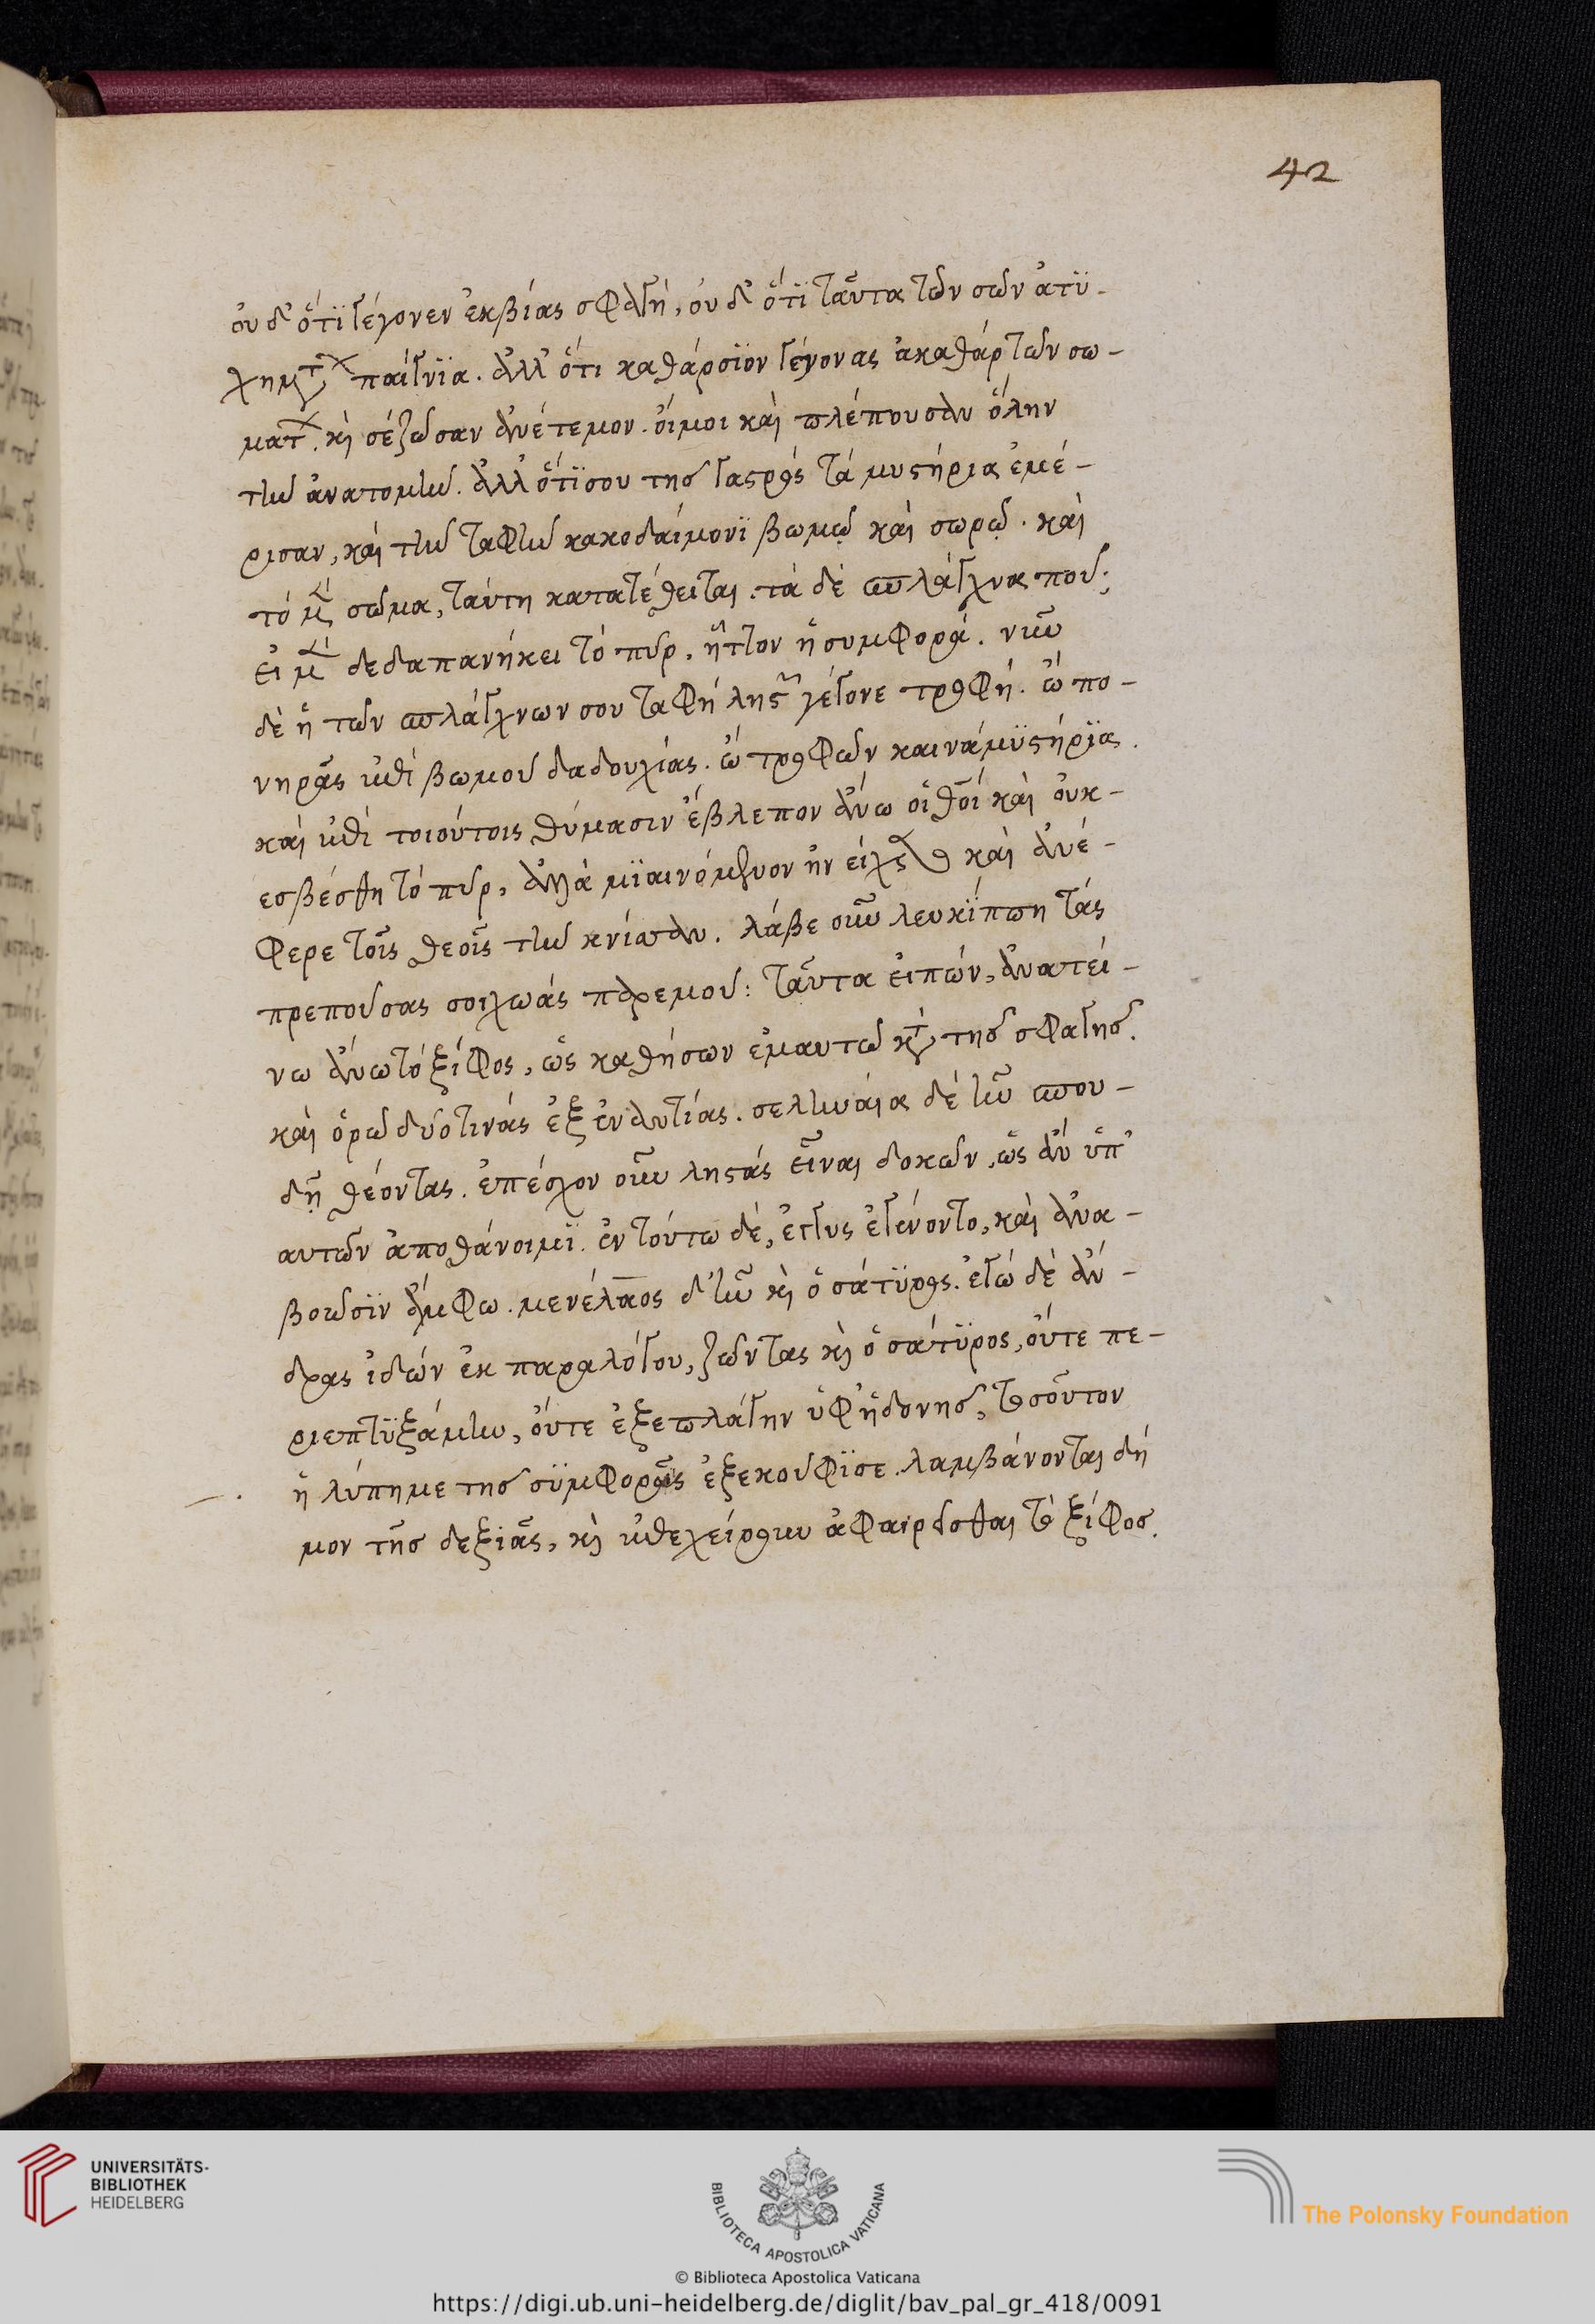 42
οὐδ' ὅτι γέγονεν ἐκ βίας σφαγή, οὐδ' ὅτι ταῦτα τῶν σῶν ἀτυ-
χημάτων παίγνια. ἀλλ' ὅτι καθάρσιον γέγονας ἀκαθάρτων σω-
μάτων. καὶ σέ ζῶσαν ἀνέτεμον. οἴμοι καὶ βλέπουσαν ὅλην
τὴν ἀνατομὴν. ἀλλ' ὅτι σου τῆς γαστρός τὰ μυστήρια ἐμέ-
ρισαν, καὶ τὴν ταφὴν κακοδαίμονι βωμῷ καὶ σωρῷ. καὶ
τὸ μὲν σῶμα, ταύτη κατατέθειται. τὰ δὲ σπλάγχνα ποῦ;
εἰ μὲν δεδαπανήκει τὸ πῦρ, ἧττον ἡ συμφορά. νῦν
δὲ ἡ τῶν σπλάγχνων σου ταφὴ λῃστῶν γέγονε τροφή. ὢ πο-
νηρᾶς ἐπὶ βωμοῦ δαδουχίας. ὢ τροφῶν καινὰ μυστήρια.
καὶ ἐπὶ τοιούτοις θύμασιν ἔβλεπον ἄνω οἱ θεοί καὶ οὐκ-
εσβέσθη τὸ πῦρ, ἀλλὰ μιαινόμενον ἠνείχετο καὶ ἀνέ-
φερε τοῖς θεοῖς τὴν κνίσαν. λάβε οὖν λευκίππη τάς
πρεπούσας σοι χοάς παρ' ἐμοῦ: ταῦτα εἰπών, ἀνατεί-
νω ἄνω τὸ ξίφος, ὡς καθήσων ἐμαυτῶ κατὰ τῆς σφαγῆς.
καὶ ὁρῶ δύο τινάς ἐξ ἐναντίας. σεληναία δὲ ἦν σπου-
δῇ θέοντας. ἐπέσχον οὖν λῃστάς εἶναι δοκῶν, ὡς ἂν ὑπ'
αὐτῶν ἀποθάνοιμι. ἐν τούτω δὲ, ἐγγὺς ἐγένοντο, καὶ ἀνα-
βοῶσιν ἄμφω. μενέλαος δ' ἦν καὶ ὁ σάτυρος. ἐγὼ δὲ ἄν-
δρας ἰδὼν ἐκ παραλόγου, ζῶντας καὶ ὁ σάτυρος, οὔτε πε-
ριεπτυξάμην, οὔτε ἐξεπλάγην ὑφ' ἡδονῆς, τοσοῦτον
ἡ λύπη με τῆς συμφορᾶς ἐξεκούφισε. λαμβάνονται δή
μου τῆς δεξιᾶς, καὶ ἐπεχείρουν ἀφαιρεῖσθαι τὸ ξίφος.
UNIVERSITÄTS-
BIBLIOTHEK
HEIDELBERG
BIBLIOTECA APOSTOLICA VATICANA
The Polonsky Foundation
© Biblioteca Apostolica Vaticana
https://digi.ub.uni-heidelberg.de/diglit/bav_pal_gr_418/0091